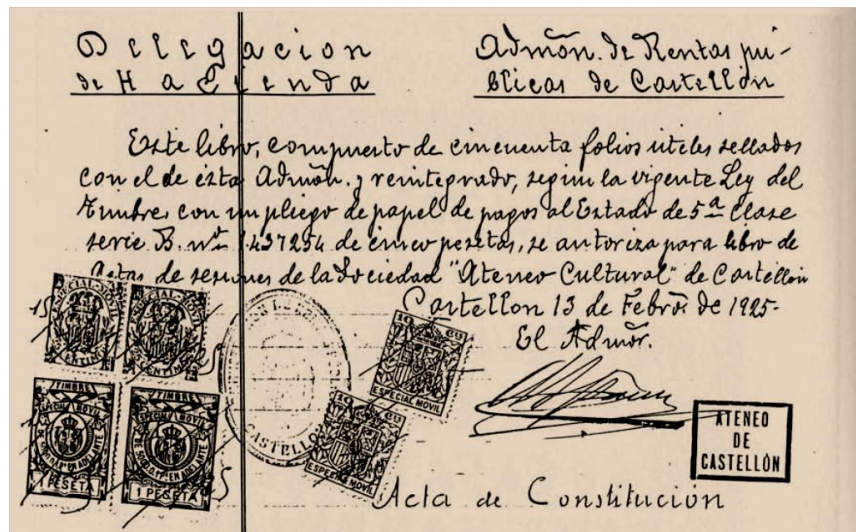 Delegacion
de Hacienda
Admón. de Rentas pú-
blicas de Castellón
Este libro, compuesto de cincuenta folios útiles sellados
con el de ésta Admón. y reintegrado, según la vigente Ley del
Timbre, con un pliego de papel de pagos al Estado de 5ª clase
serie B. nº 1437254 de cinco pesetas, se autoriza para libro de
Actas de sesiones de la Sociedad "Ateneo Cultural" de Castellón
Castellon 13 de Febrº de 1925-
El Admor.
ESPECIAL MOVIL
ESPECIAL MOVIL
10 CU
ESPECIAL MOVIL
10 CU
ESPECIAL MOVIL
TIMBRE
ESPECIAL MOVIL
1 PESETA
TIMBRE
ESPECIAL MOVIL
1 PESETA
CASTELLON
ATENEO
DE
CASTELLÓN
Acta de Constitución